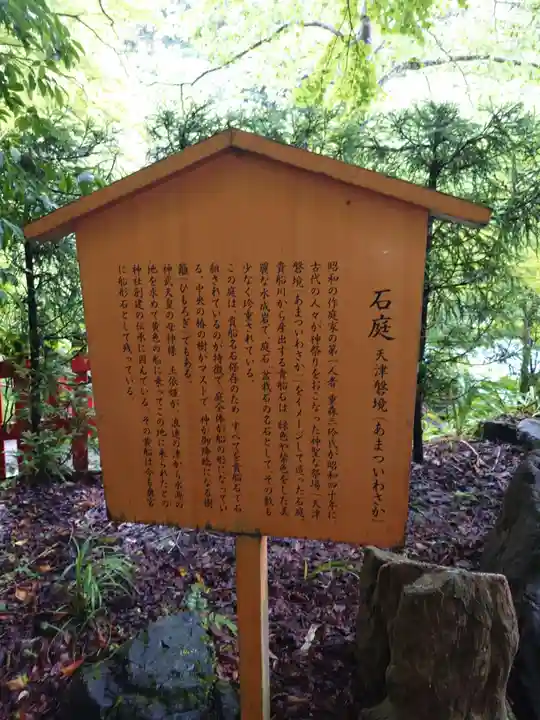 石庭 天津磐境「あまついわさか」
昭和の作庭家の第一人者 重森三玲氏が昭和四十年に
古代の人々が神祭りをおこなった神聖な祭場「天津
磐境、あまついわさか」をイメージして造った石庭。
貴船川から産出する貴船石は、緑色や紫色をした美
麗な水成岩で、庭石、盆栽石の名石として、その数も
少なく珍重されている。
この庭は、貴船名石保存のため、すべてを貴船石で石
組されているのが特徴で、庭全体が船の形になってい
る。中央の椿の樹がマストで、神が御降臨になる樹
籬「ひもろぎ」でもある。
神武天皇の母神様 玉依姫が、浪速の津から水源の
地を求めて黄色の船に乗ってこの地に来られたとの
神社創建の伝承に因んでいる。その黄船は今も奥宮
に船形石として残っている。